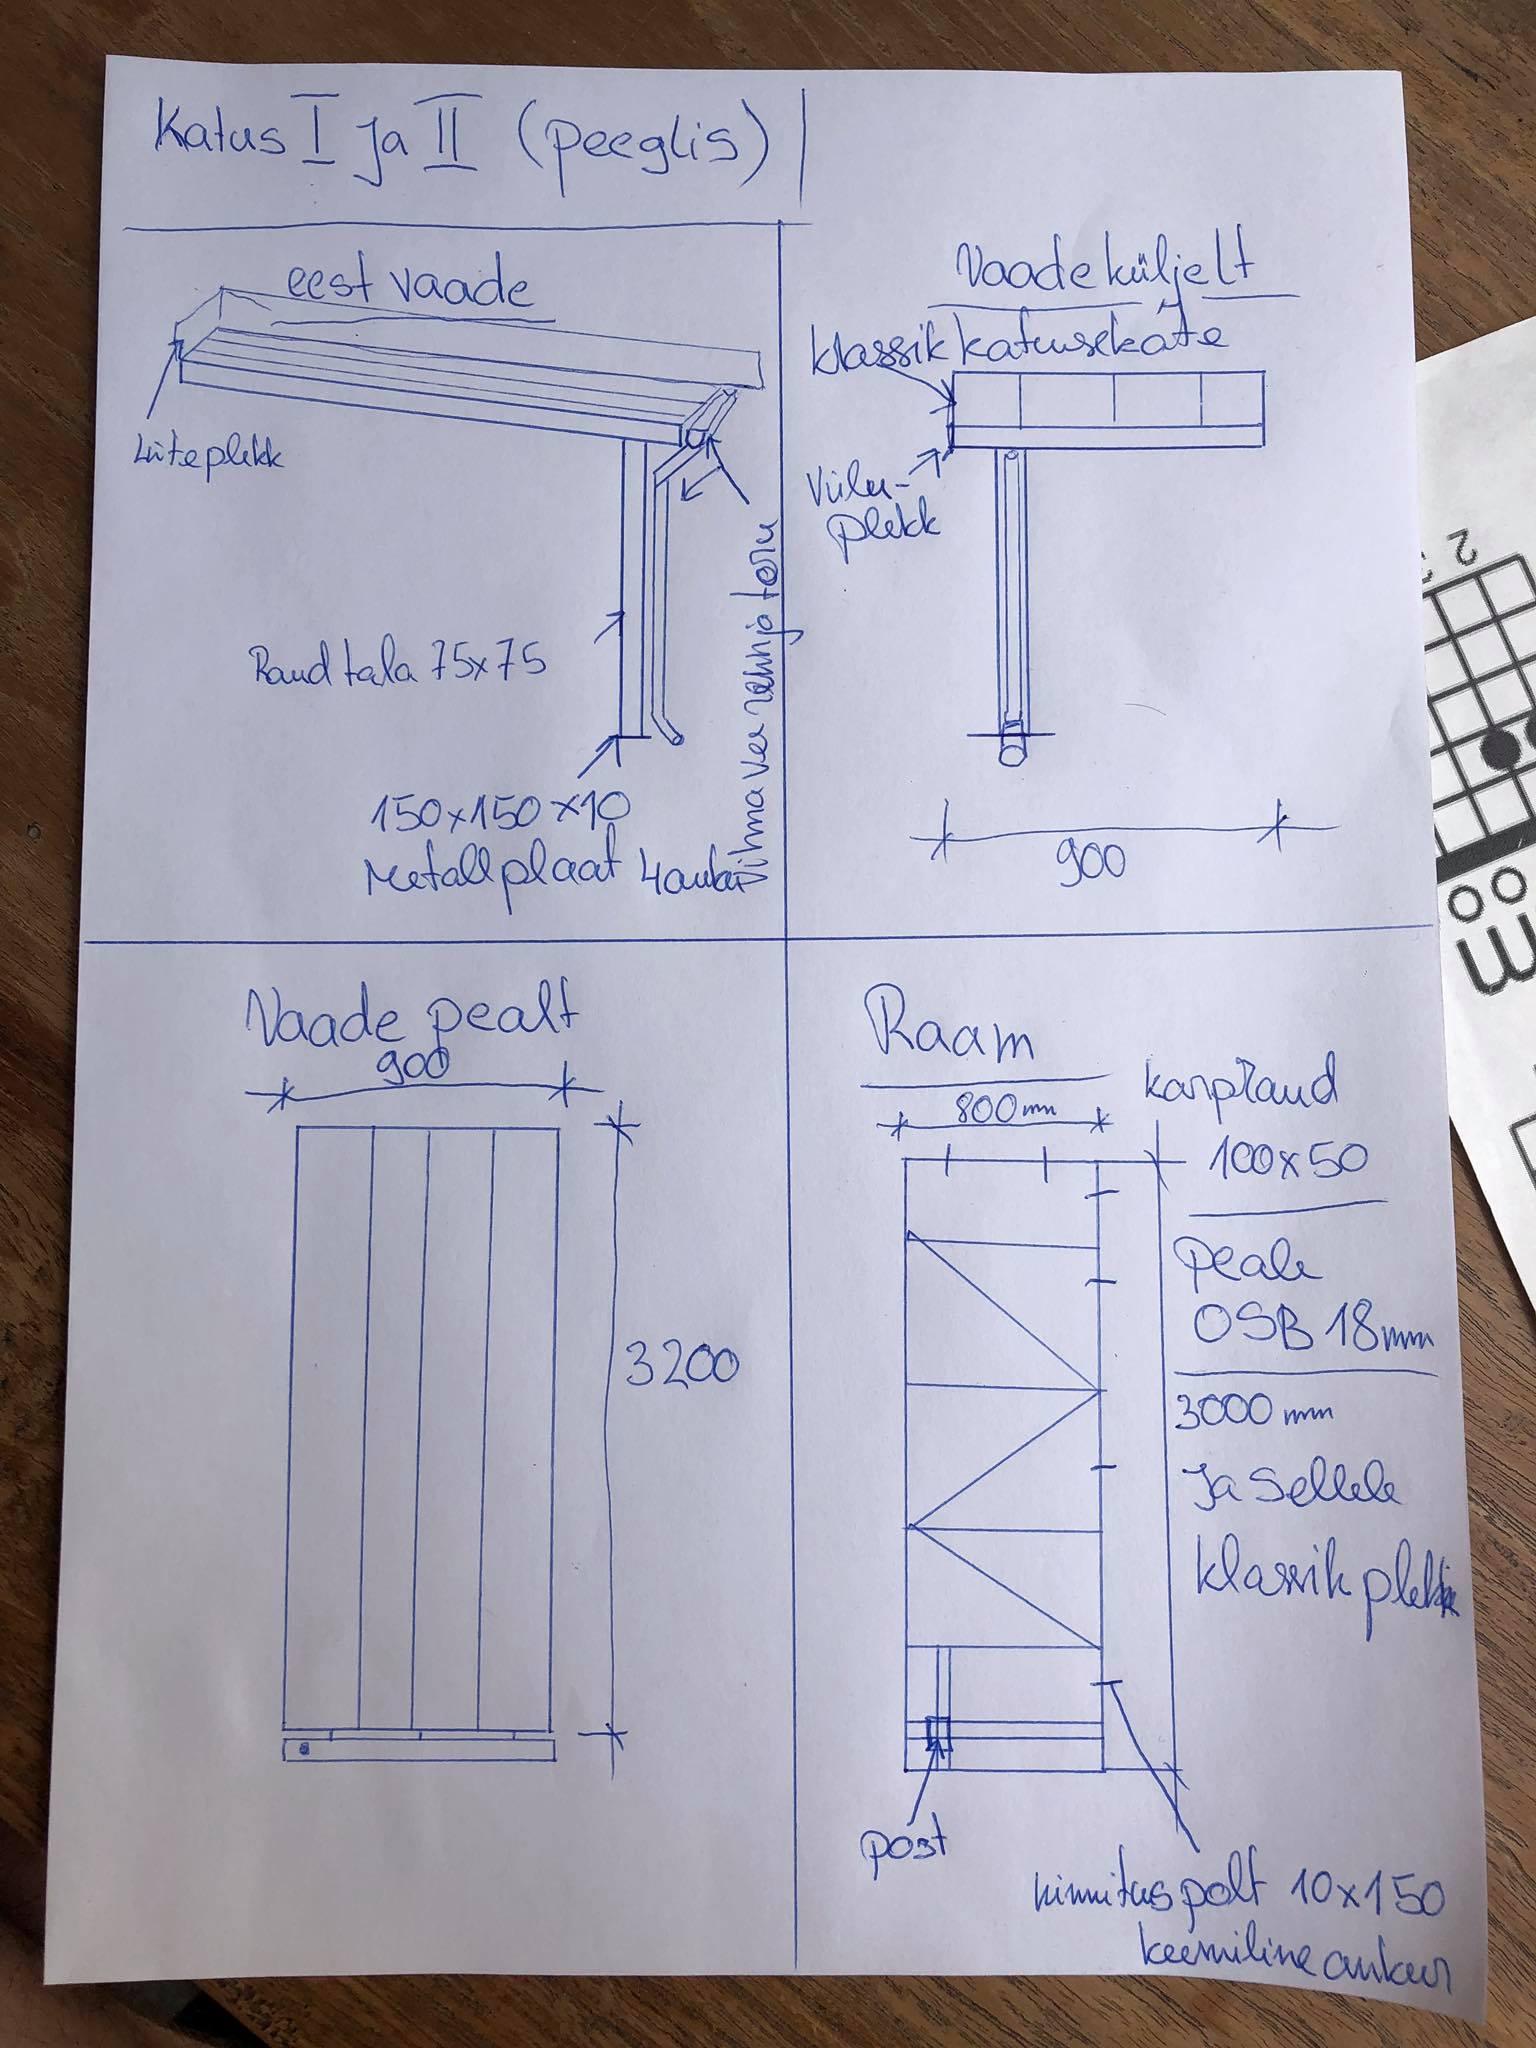 Katus I ja II (peeglis)
eest vaade
Liiteplekk
Raud tala 75x75
150x150x10
Metallplaat 4 auku
vihmaveerenn ja toru
Vaade küljelt
klassik katusekate
Viilu-
plekk
900
Vaade pealt
900
3200
Raam
800mm
karpraud
100x50
Peale
OSB 18mm
3000mm
ja sellele
klassik plekk
post
kinnitus polt 10x150
keemiline ankur
2